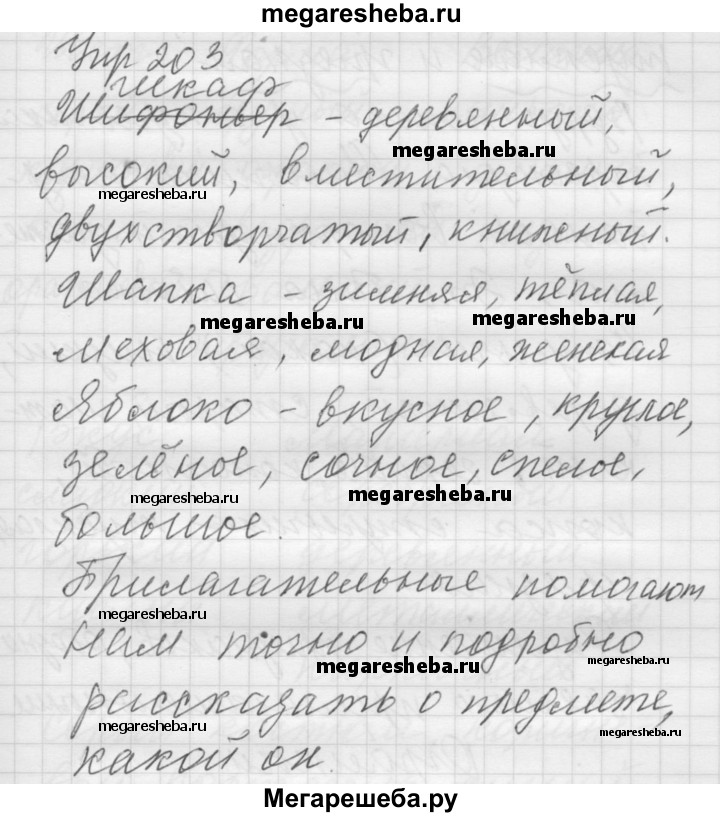 megaresheba.ru
Упр 203
шкаф
Шифоньер - деревянный,
megaresheba.ru
высокий, вместительный,
megaresheba.ru
двухстворчатый, книжный.
Шапка - зимняя, тёплая,
megaresheba.ru megaresheba.ru
меховая, модная, женская
Яблоко - вкусное, круглое,
зелёное, сочное, спелое,
megaresheba.ru megaresheba.ru
большое.
Прилагательные помогают
megaresheba.ru
нам точно и подробно
megaresheba.ru megaresheba.ru
рассказать о предмете,
megaresheba.ru megaresheba.ru
какой он.
Мегарешеба.ру